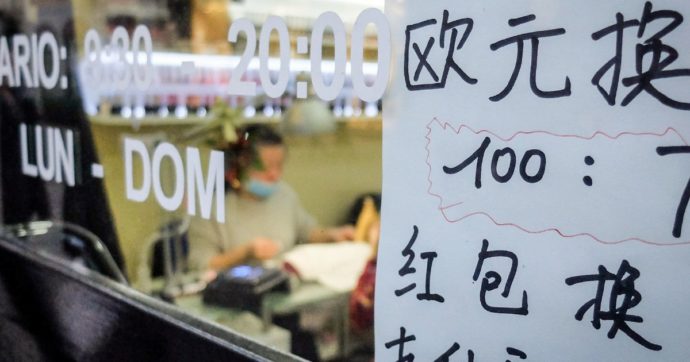 ARIO: - 20:00
LUN - DOM
欧元换
100 : 7
红包换